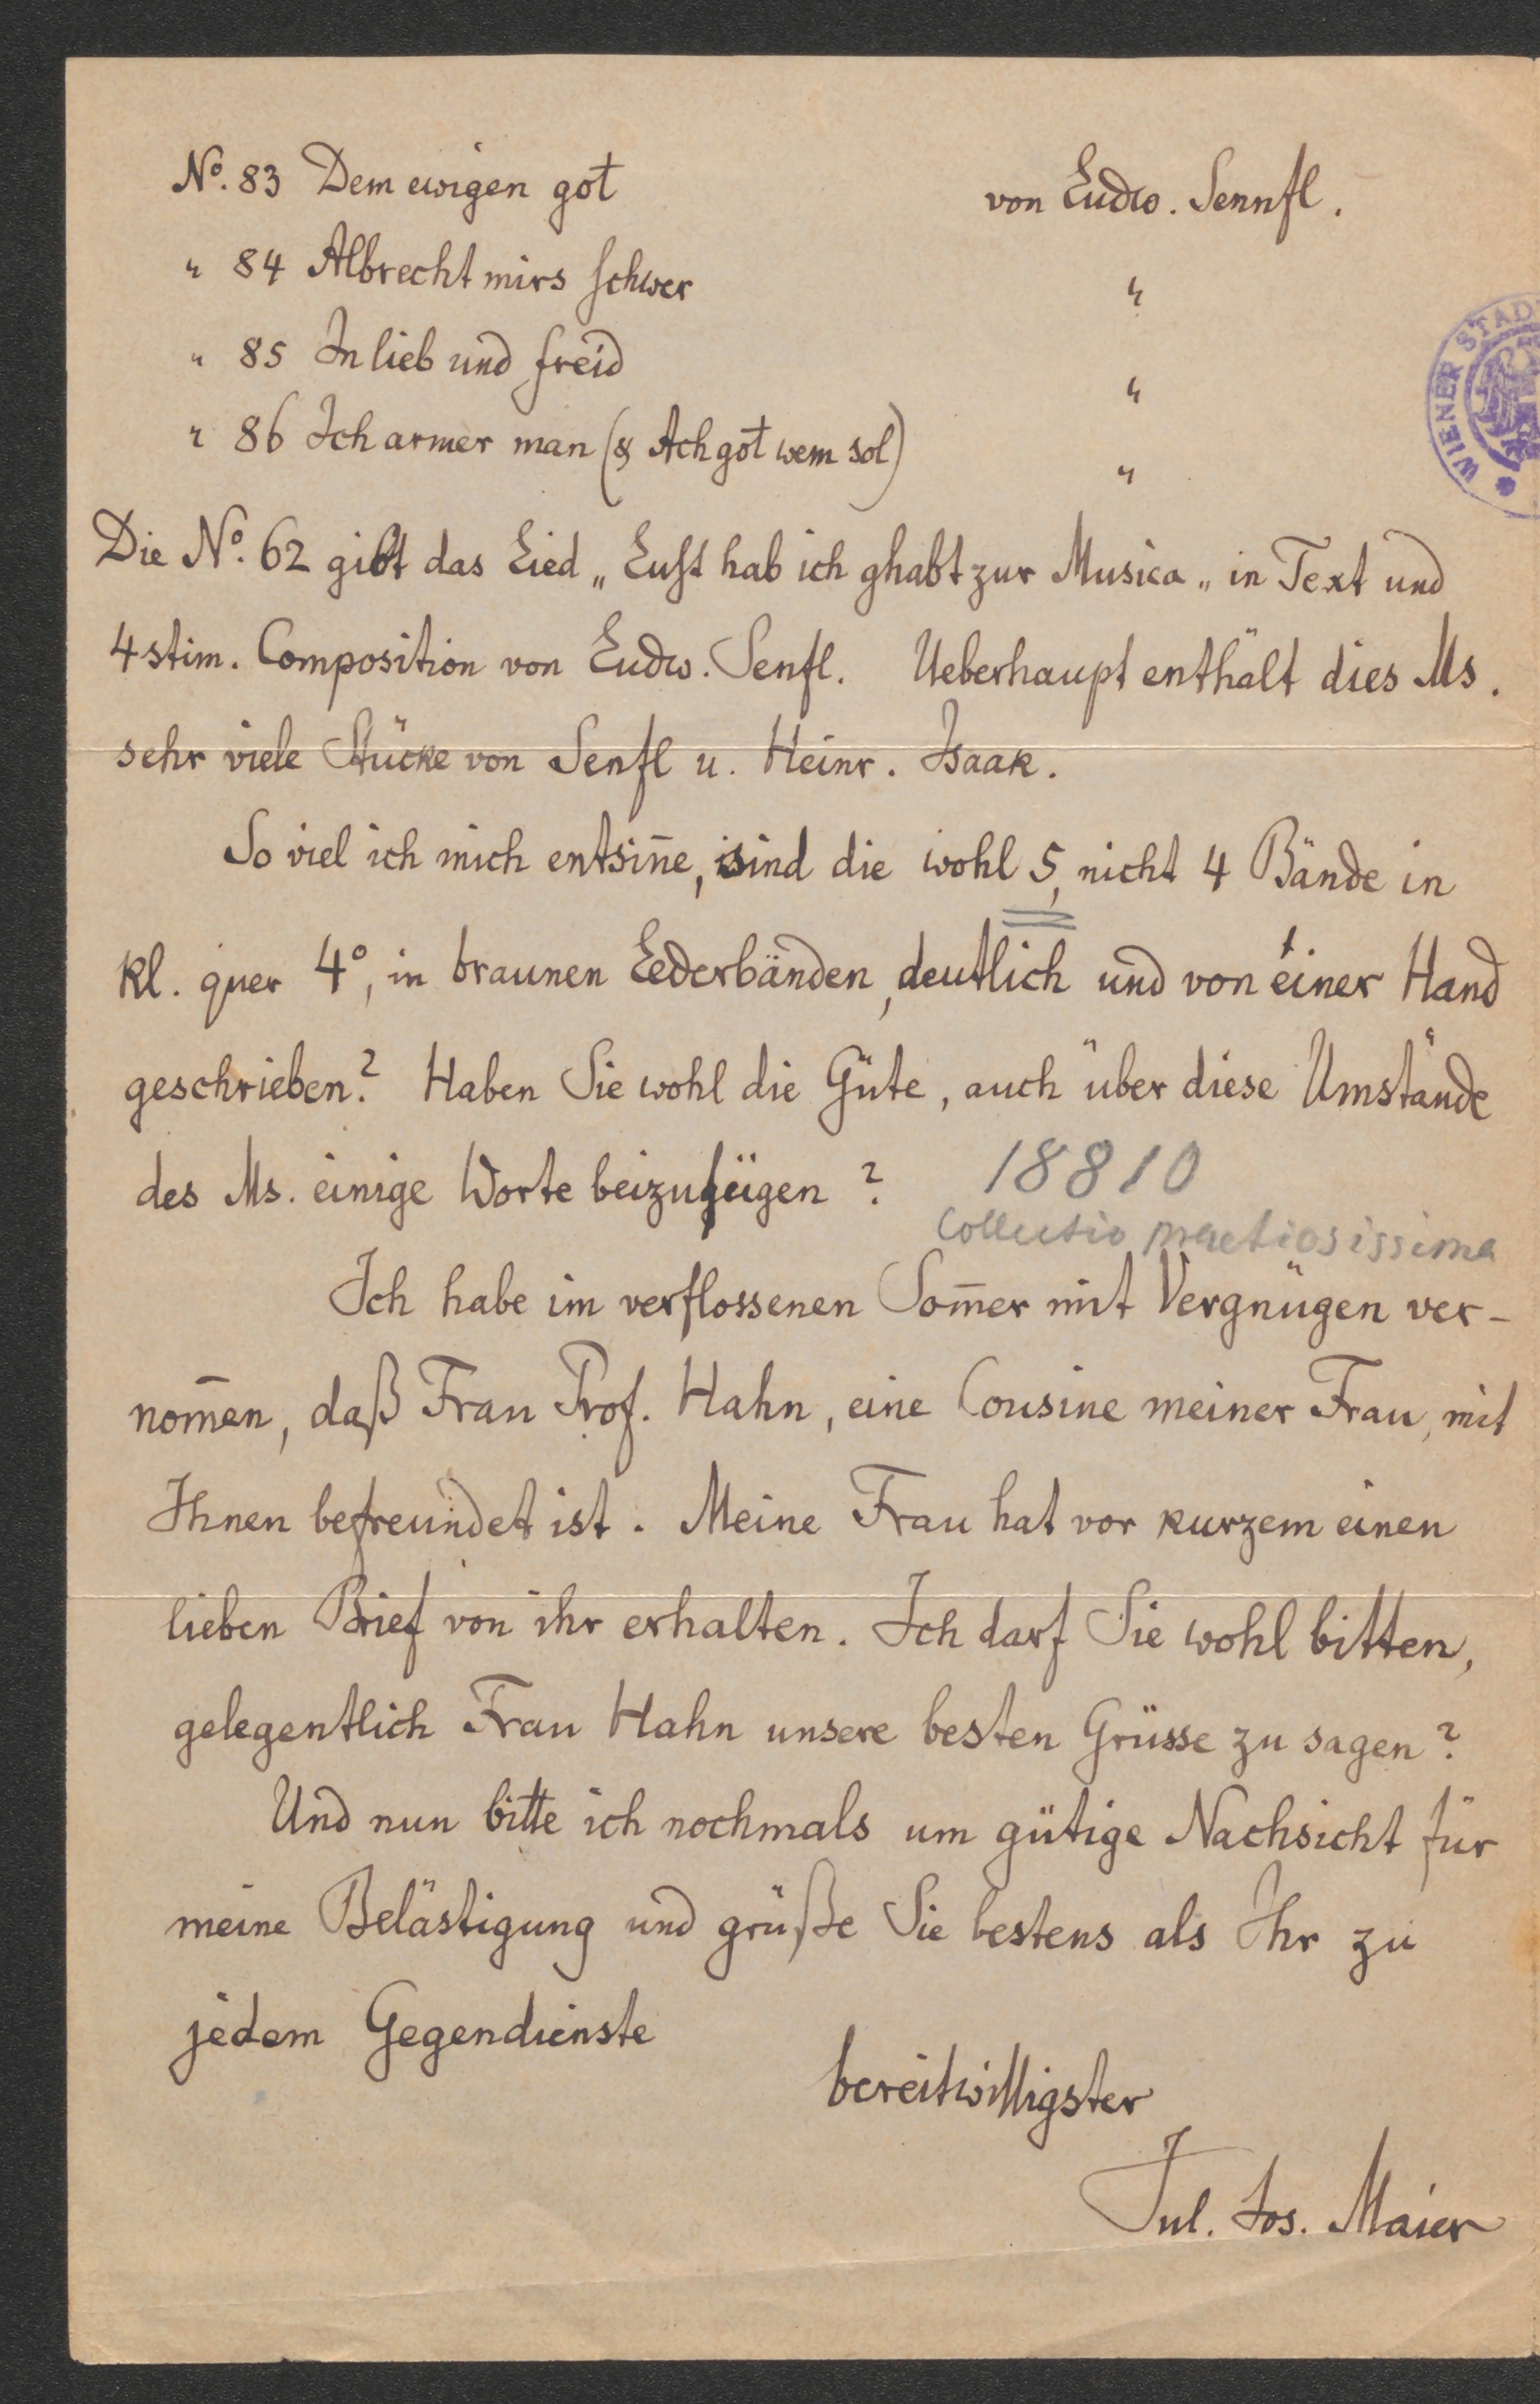 No. 83 Dem ewigen got von Ludw. Sennfl.
" 84 Albrecht mirs schwer "
" 85 In lieb und freid "
" 86 Ich armer man (& Ach got wem sol) "
WIENER STAD
Die No. 62 gibt das Lied „Lust hab ich ghabt zur Musica„ in Text und
4 stim. Composition von Ludw. Senfl. Ueberhaupt enthält dies Ms.
sehr viele Stücke von Senfl u. Heinr. Isaak.
So viel ich mich entsin̄e, sind die wohl 5, nicht 4 Bände in
kl. quer 4°, in braunen Lederbänden, deutlich und von einer Hand
geschrieben? Haben Sie wohl die Güte, auch über diese Umstände
des Ms. einige Worte beizufügen?
18810
Collectio praetiosissima
Ich habe im verflossenen Som̄er mit Vergnügen ver-
nom̄en, daß Frau Prof. Hahn, eine Cousine meiner Frau, mit
Ihnen befreundet ist. Meine Frau hat vor kurzem einen
lieben Brief von ihr erhalten. Ich darf Sie wohl bitten,
gelegentlich Frau Hahn unsere besten Grüsse zu sagen?
Und nun bitte ich nochmals um gütige Nachsicht für
meine Belästigung und grüße Sie bestens als Ihr zu
jedem Gegendienste
bereitwilligster
Jul. Jos. Maier